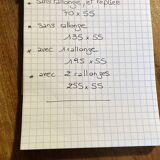 * sans rallonge, et repliée
70 x 55
* sans rallonge
135 x 55
* avec 1 rallonge
195 x 55
* avec 2 rallonges
255 x 55